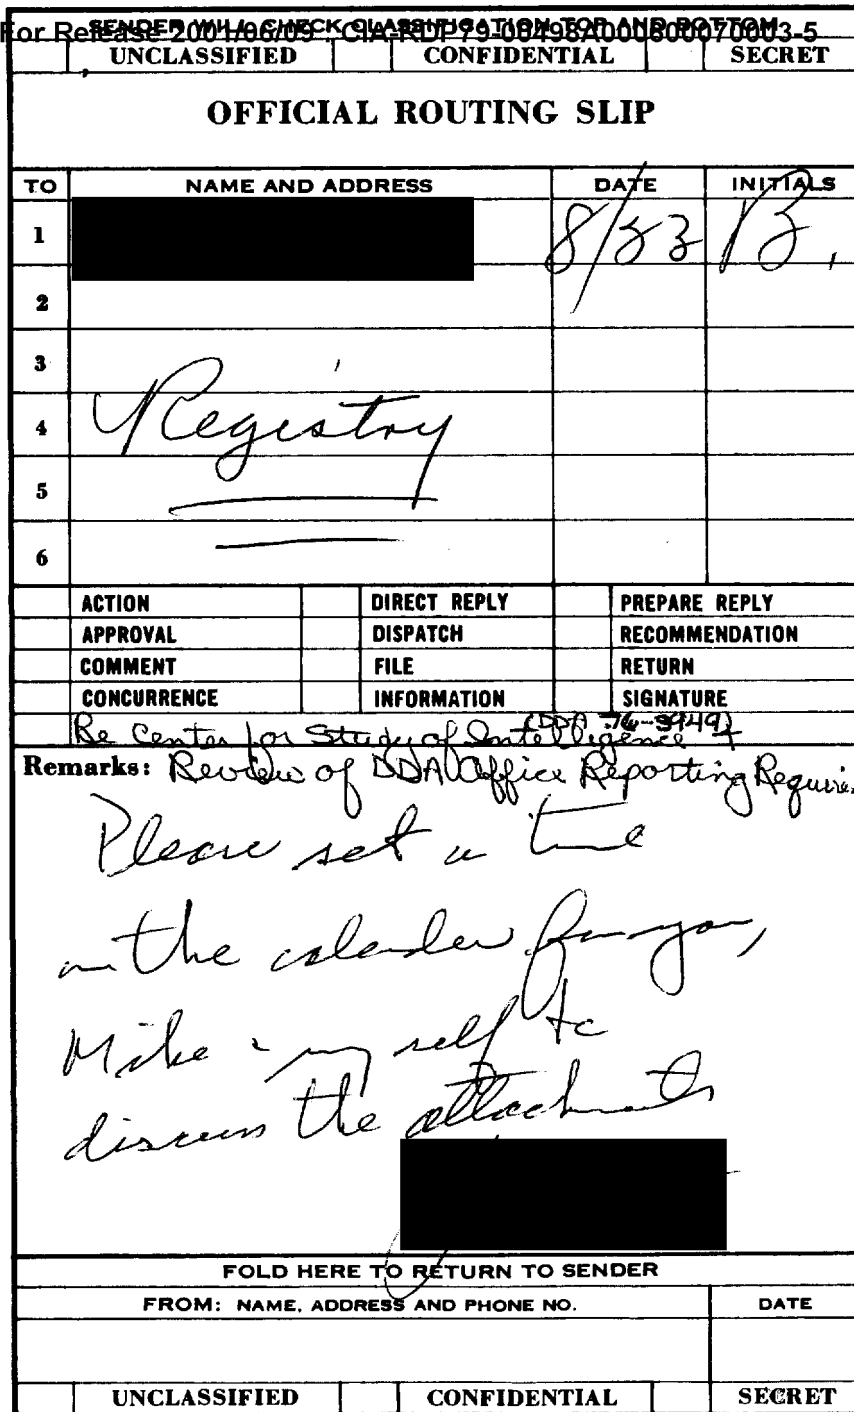 SENDER WILL CHECK CLASSIFICATION TOP AND BOTTOM
For Release 2001/06/09 : CIA-RDP79-00498A000800070003-5
UNCLASSIFIED CONFIDENTIAL SECRET
OFFICIAL ROUTING SLIP
TO NAME AND ADDRESS DATE INITIALS
1 8/23 B.
2
3
4 Registry
5
6
ACTION DIRECT REPLY PREPARE REPLY
APPROVAL DISPATCH RECOMMENDATION
COMMENT FILE RETURN
CONCURRENCE INFORMATION SIGNATURE
(DDA 76-3949)
Re Center for Study of Intelligence +
Remarks: Review of DDA Office Reporting Require
Please set a time
on the calender for you,
Mike & myself to
discuss the attachments
FOLD HERE TO RETURN TO SENDER
FROM: NAME, ADDRESS AND PHONE NO. DATE
UNCLASSIFIED CONFIDENTIAL SECRET